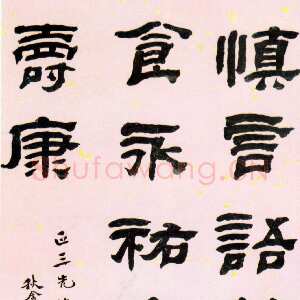 慎言語
食永祐
壽康
正三先
秋
Shufawang.CN